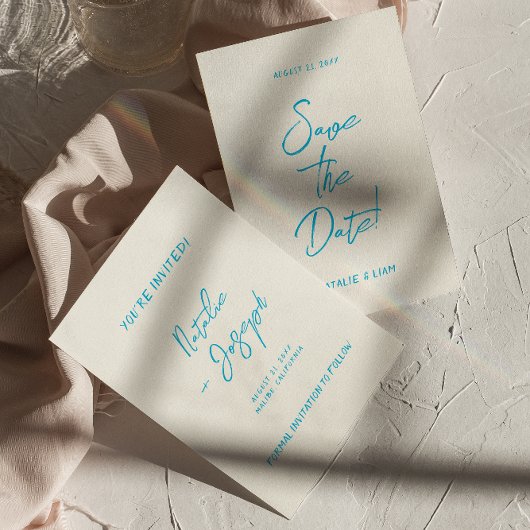 AUGUST 21, 20XX
Save
the
Date!
NATALIE & LIAM
YOU'RE INVITED!
Natalie
+ Joseph
AUGUST 21, 20XX
MALIBU CALIFORNIA
FORMAL INVITATION TO FOLLOW